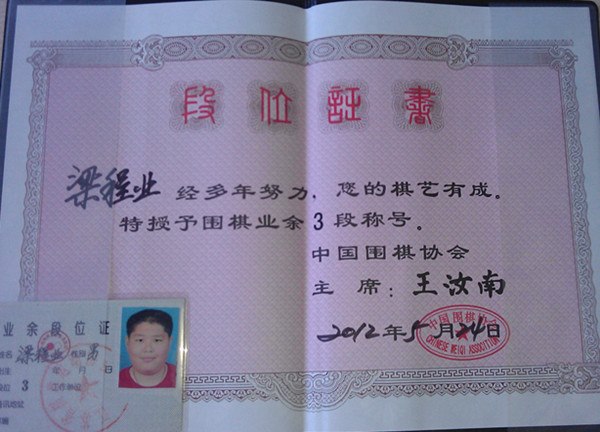 段位証書
梁程业 经多年努力，您的棋艺有成。
特授予围棋业余3段称号。
中国围棋协会
主席：王汝南
2012年5月24日
中国围棋协会
CHINESE WEIQI ASSOCIATION
业余段位证
姓名 梁程业 性别 男
出生 年 月 日
段位 3 工作单位